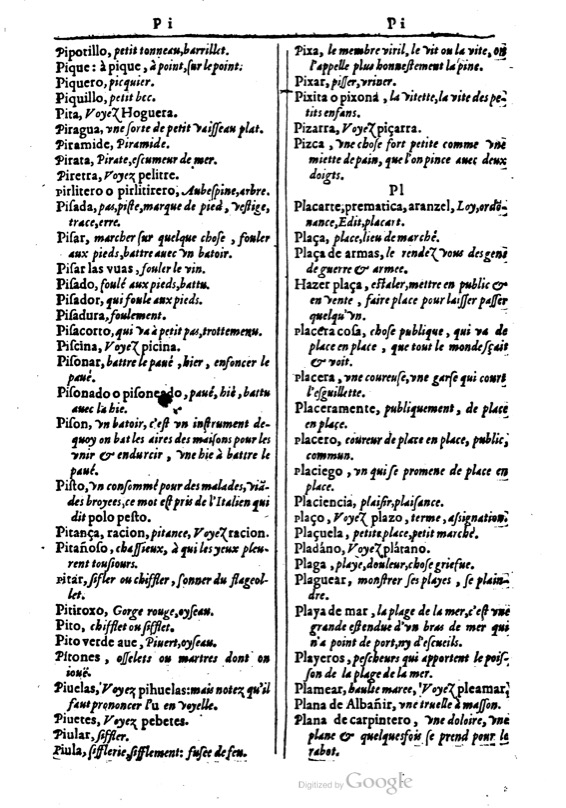 Pi
Pipotillo, petit tonneau, barrillet.
Pique: à pique, à point, sur le point.
Piquero, picquier.
Piquillo, petit bec.
Pita, Voyez Hoguera.
Piragua, vne sorte de petit vaisseau plat.
Piramide, Piramide.
Pirata, Pirate, escumeur de mer.
Piretra, Voyez pelitre.
pirlitero o pirlitirero, Aubespine, arbre.
Pisada, pas, piste, marque de pied, vestige,
trace, erre.
Pisar, marcher sur quelque chose, fouler
aux pieds, battre auec vn batoir.
Pisar las vuas, fouler le vin.
Pisado, foulé aux pieds, battu.
Pisador, qui foule aux pieds.
Pisadura, foulement.
Pisacorto, qui va à petit pas, trottemenu.
Piscina, Voyez picina.
Pisonar, battre le paué, hier, enfoncer le
paué.
Pisonado o pisoneado, paué, hié, battu
auec la hie.
Pison, vn batoir, c'est vn instrument de-
quoy on bat les aires des maisons pour les
vnir & endurcir, vne hie à battre le
paué.
Pisto, vn consommé pour des malades, viā-
des broyees, ce mot est pris de l'Italien qui
dit polo pesto.
Pitança, racion, pitance, Voyez racion.
Pitañoso, chassieux, à qui les yeux pleu-
rent tousiours.
pitar, sifler ou chiffler, sonner du flageol-
let.
Pitiroxo, Gorge rouge, oyseau.
Pito, chifflet ou sifflet.
Pito verde aue, Piuert, oyseau.
Pitones, osselets ou martres dont on
iouë.
Piuelas, Voyez pihuelas: mais notez qu'il
faut prononcer l'u en voyelle.
Piuetes, Voyez pebetes.
Piular, siffler.
Piula, sifflerie, sifflement: fusee de feu.
Pi
Pixa, le membre viril, le vit ou la vite, on
l'appelle plus honnestement la pine.
Pixar, pisser, vriner.
Pixita o pixona, la vitette, la vite des pe-
tits enfans.
Pizarra, Voyez piçarra.
Pizca, vne chose fort petite comme vne
miette de pain, que l'on pince auec deux
doigts.
Pl
Placarte, prematica, aranzel, Loy, ordō-
nance, Edit, placart.
Plaça, place, lieu de marché.
Plaça de armas, le rendez vous des gens
de guerre & armee.
Hazer plaça, estaler, mettre en public &
en vente, faire place pour laisser passer
quelqu'vn.
placera cosa, chose publique, qui va de
place en place, que tout le monde sçait
& voit.
placera, vne coureuse, vne garse qui court
l'esguillette.
Placeramente, publiquement, de place
en place.
placero, coureur de place en place, public,
commun.
placiego, vn qui se promene de place en
place.
Placiencia, plaisir, plaisance.
Plaço, Voyez plazo, terme, assignation.
Plaçuela, petite place, petit marché.
Pladáno, Voyez plátano.
Plaga, playe, douleur, chose griefue.
Plaguear, monstrer ses playes, se plain-
dre.
Playa de mar, la plage de la mer, c'est vne
grande estendue d'vn bras de mer qui
n'a point de port, ny d'escueils.
Playeros, pescheurs qui apportent le pois-
son de la plage de la mer.
Plamear, haulse maree, Voyez pleamar,
Plana de Albañir, vne truelle à masson.
Plana de carpintero, vne doloire, vne
plane & quelquesfois se prend pour le
rabot.
Digitized by Google